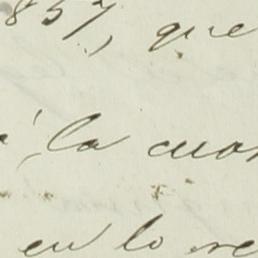 857, que
á la cua
en lo re